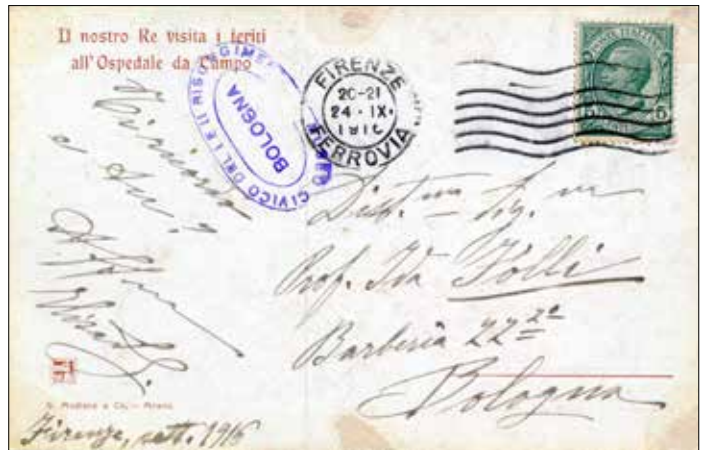 Il nostro Re visita i feriti
all'Ospedale da Campo
MUSEO CIVICO DEL I E II RISORGIMENTO
BOLOGNA
FIRENZE
20-21
24 · IX ·
1916
FERROVIA
POSTE ITALIANE
5
Ti ricordo
Prof. Ida Folli
Barberia 22 2º
Bologna
N. Modiano e Co. - Milano
Firenze, sett. 1916